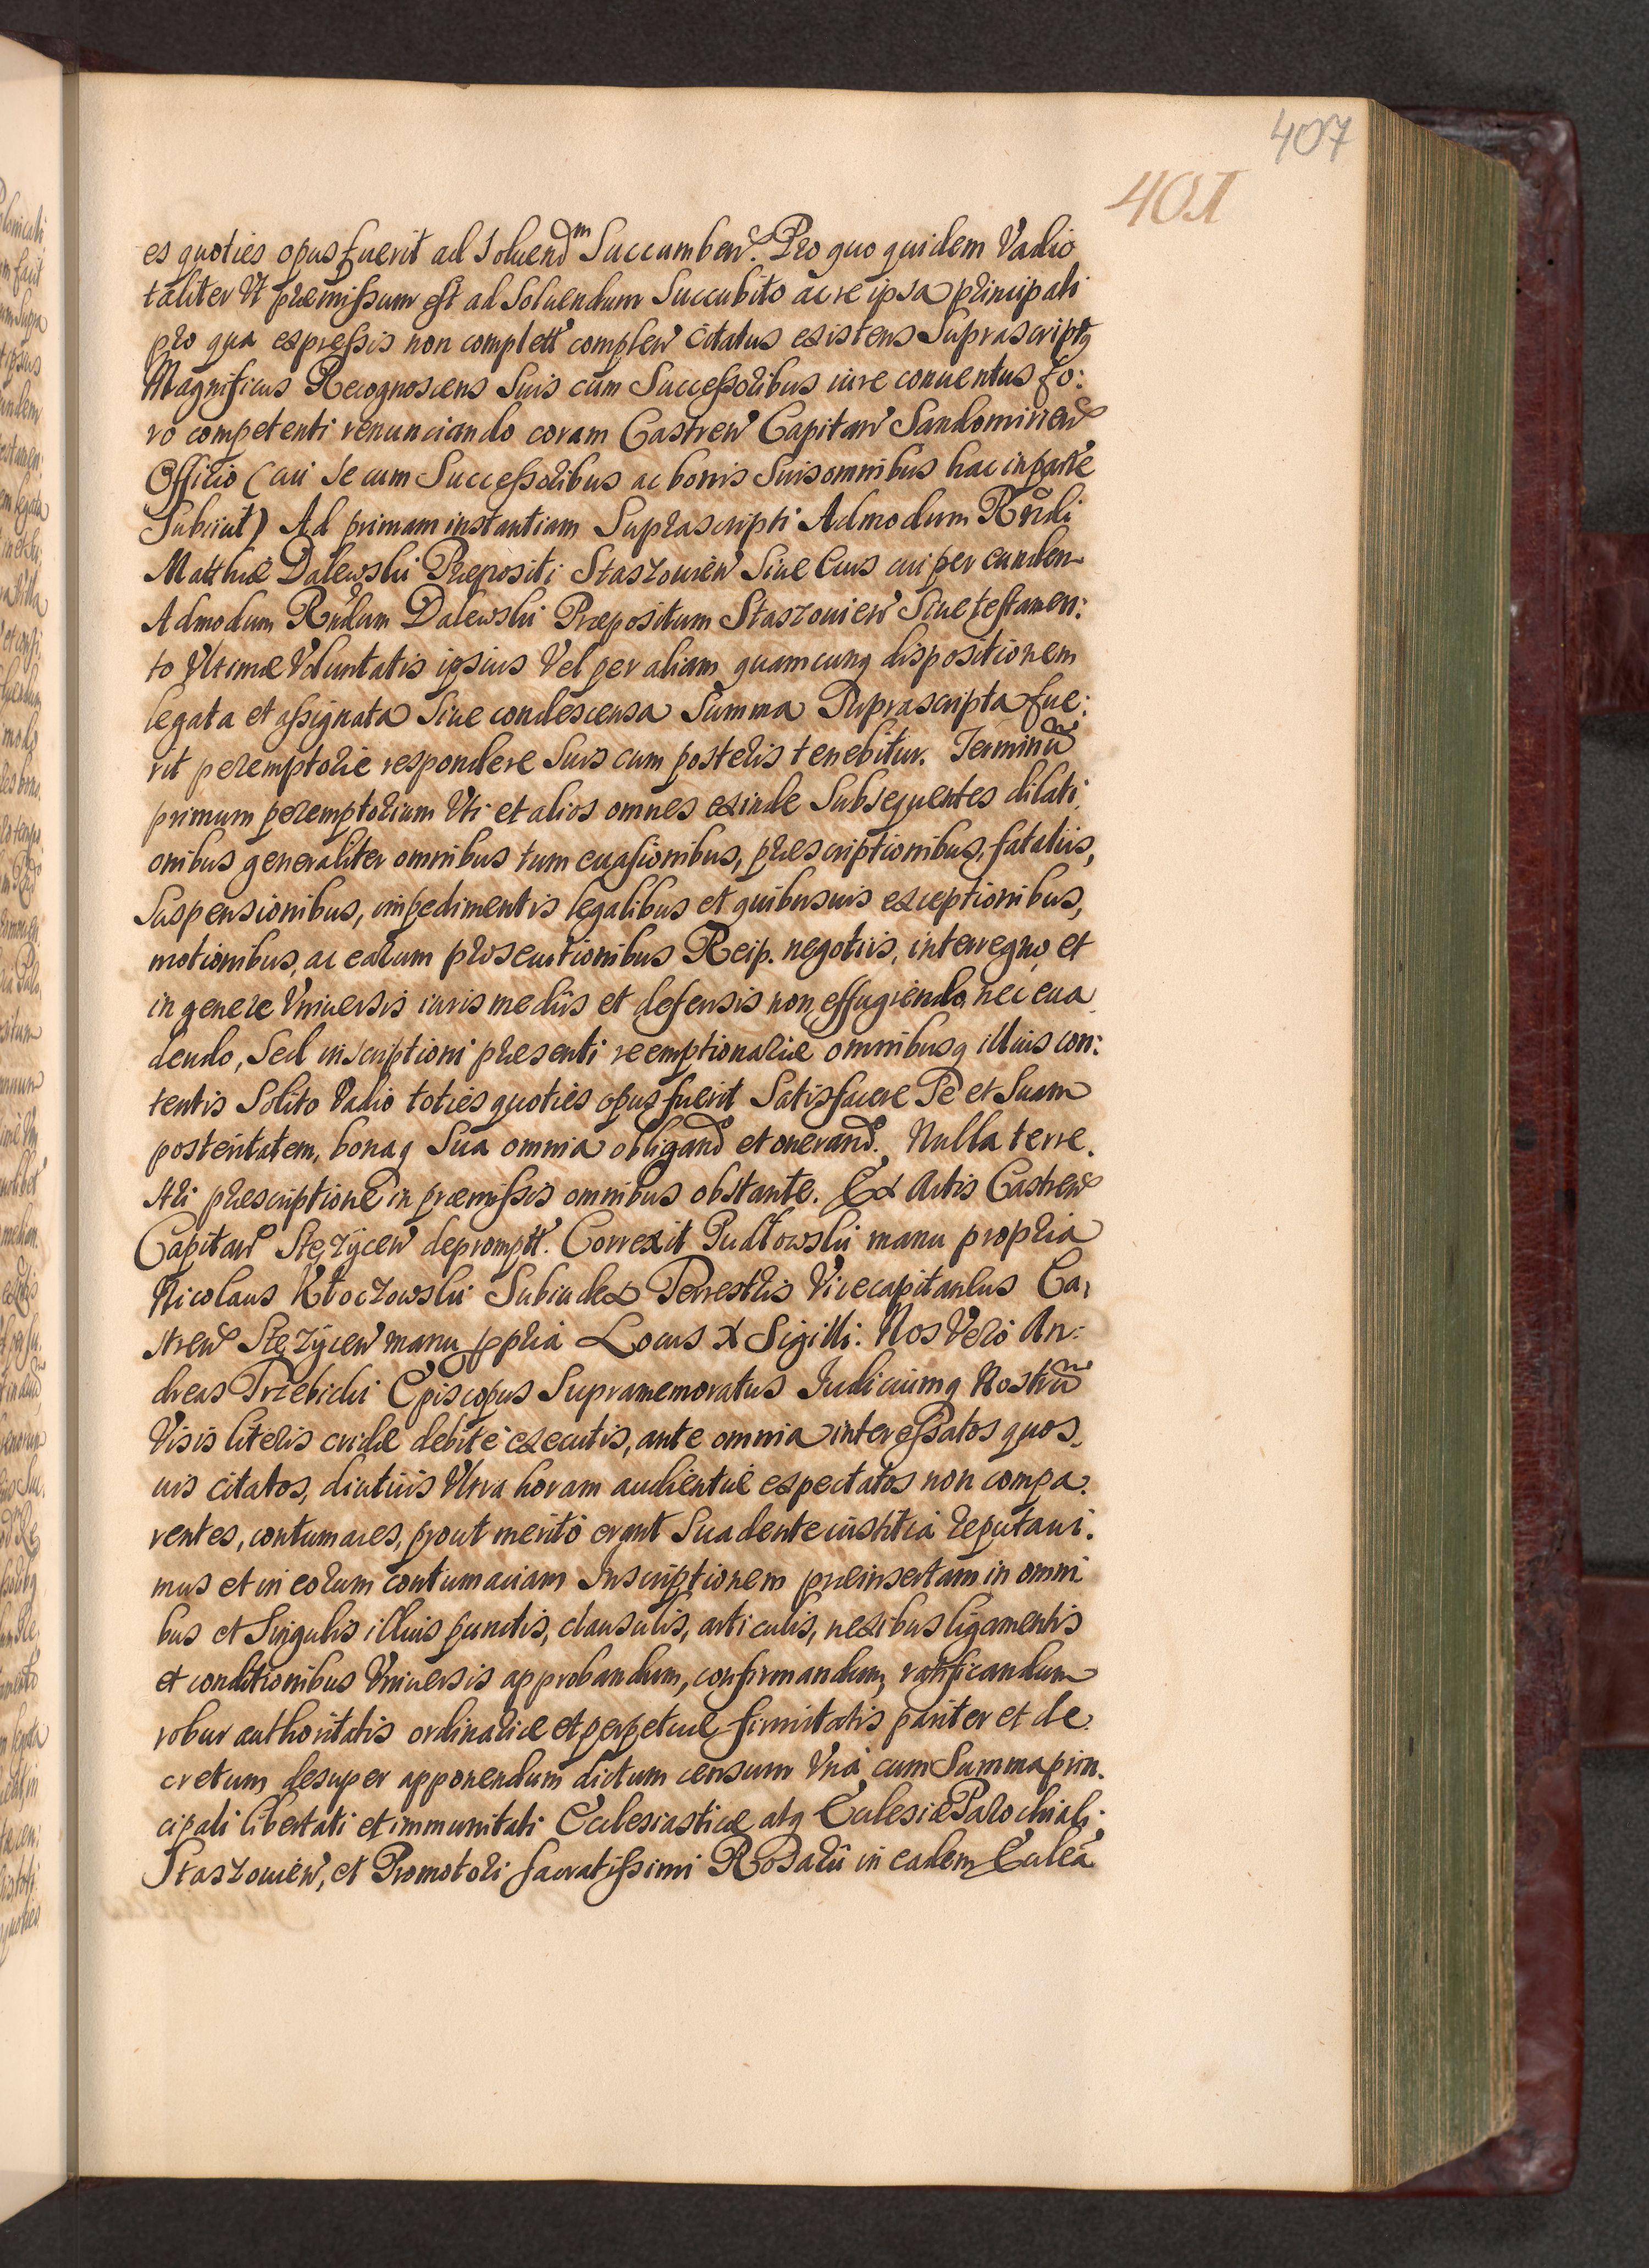 407
401
es quoties opus fuerit ad Soluend^m Succumben. Pro quo quidem Vadio
taliter Vt præmissum est ad Soluendum Succubito ac re ipsa principali
pro qua expressis non complett complen citatus existens Suprascriptq
Magnificus Recognoscens Suis cum Successoribus iure conuentus fo:
ro competenti renunciando coram Castren Capitan Sandomirien
Officio (cui Se cum Successoribus ac bonis Suis omnibus hac in parte
Subiicit) Ad primam instantiam Suprascripti Admodum Rndi
Matthiæ Dalewski Præpositi Staszouien Siue Eius cui per eundem
Admodum Rndum Dalewski Præpositum Staszouien Siue testamen:
to Vltimæ Voluntatis ipsius Vel per aliam quamcunq dispositionem
legata et assignata Siue condescensa Summa Suprascripta fue:
rit peremptorie respondere Suis cum posteris tenebitur. Terminũ
primum peremptorium Vti et alios omnes exinde Subsequentes dilati
onibus generaliter omnibus tum euasionibus, præscriptionibus, fataliis,
Suspensionibus, impedimentis legalibus et quibusuis exceptionibus,
motionibus, ac earum prosecutionibus Reip. negotiis, interregno, et
in genere Vniuersis iuris mediis et defensis non effugiendo, nec eua
dendo, Sed inscriptioni præsenti reemptionaliæ omnibusq illius con:
tentis Solito Vadio toties quoties opus fuerit Satisfacere Se et Suam
posteritatem, bonaq Sua omnia obligand et onerand. Nulla terre.
stri præscriptione in præmissis omnibus obstante. Ex Actis Castren
Capitan Stężycen deprompt. Correxit Pudłowski manu propria
Nicolaus Kłoczowski Subiudex Terrestris Vicecapitaneus Ca,
stren Stężycen manu ppria Locus X Sigilli: Nos Vero An:
dreas Trzebicki Episcopus Supramemoratus Iudiciumq Nostrũ
Visis literis cridæ debite executis, ante omnia interessatos quos.
uis citatos, diutius Vltra horam audientiæ expectatos non compa.
rentes, contumaces, prout merito erant Suadente iustitia reputaui.
mus et in eorum contumaciam Inscriptionem præinsertam in omni
bus et Singulis illius punctis, clausulis, articulis, nexibus ligamentis
et conditionibus Vniuersis approbandum, confirmandum, ratificandum
robur authoritatis ordinariæ et perpetuæ firmitatis pariter et de
cretum desuper apponendum dictum censum Vna cum Summa prin.
cipali libertati et immunitati Ecclesiasticæ atq Ecclesiæ Parochiali;
Staszouien, et Promotori sacratissimi Rosarii in eadem Ecclea